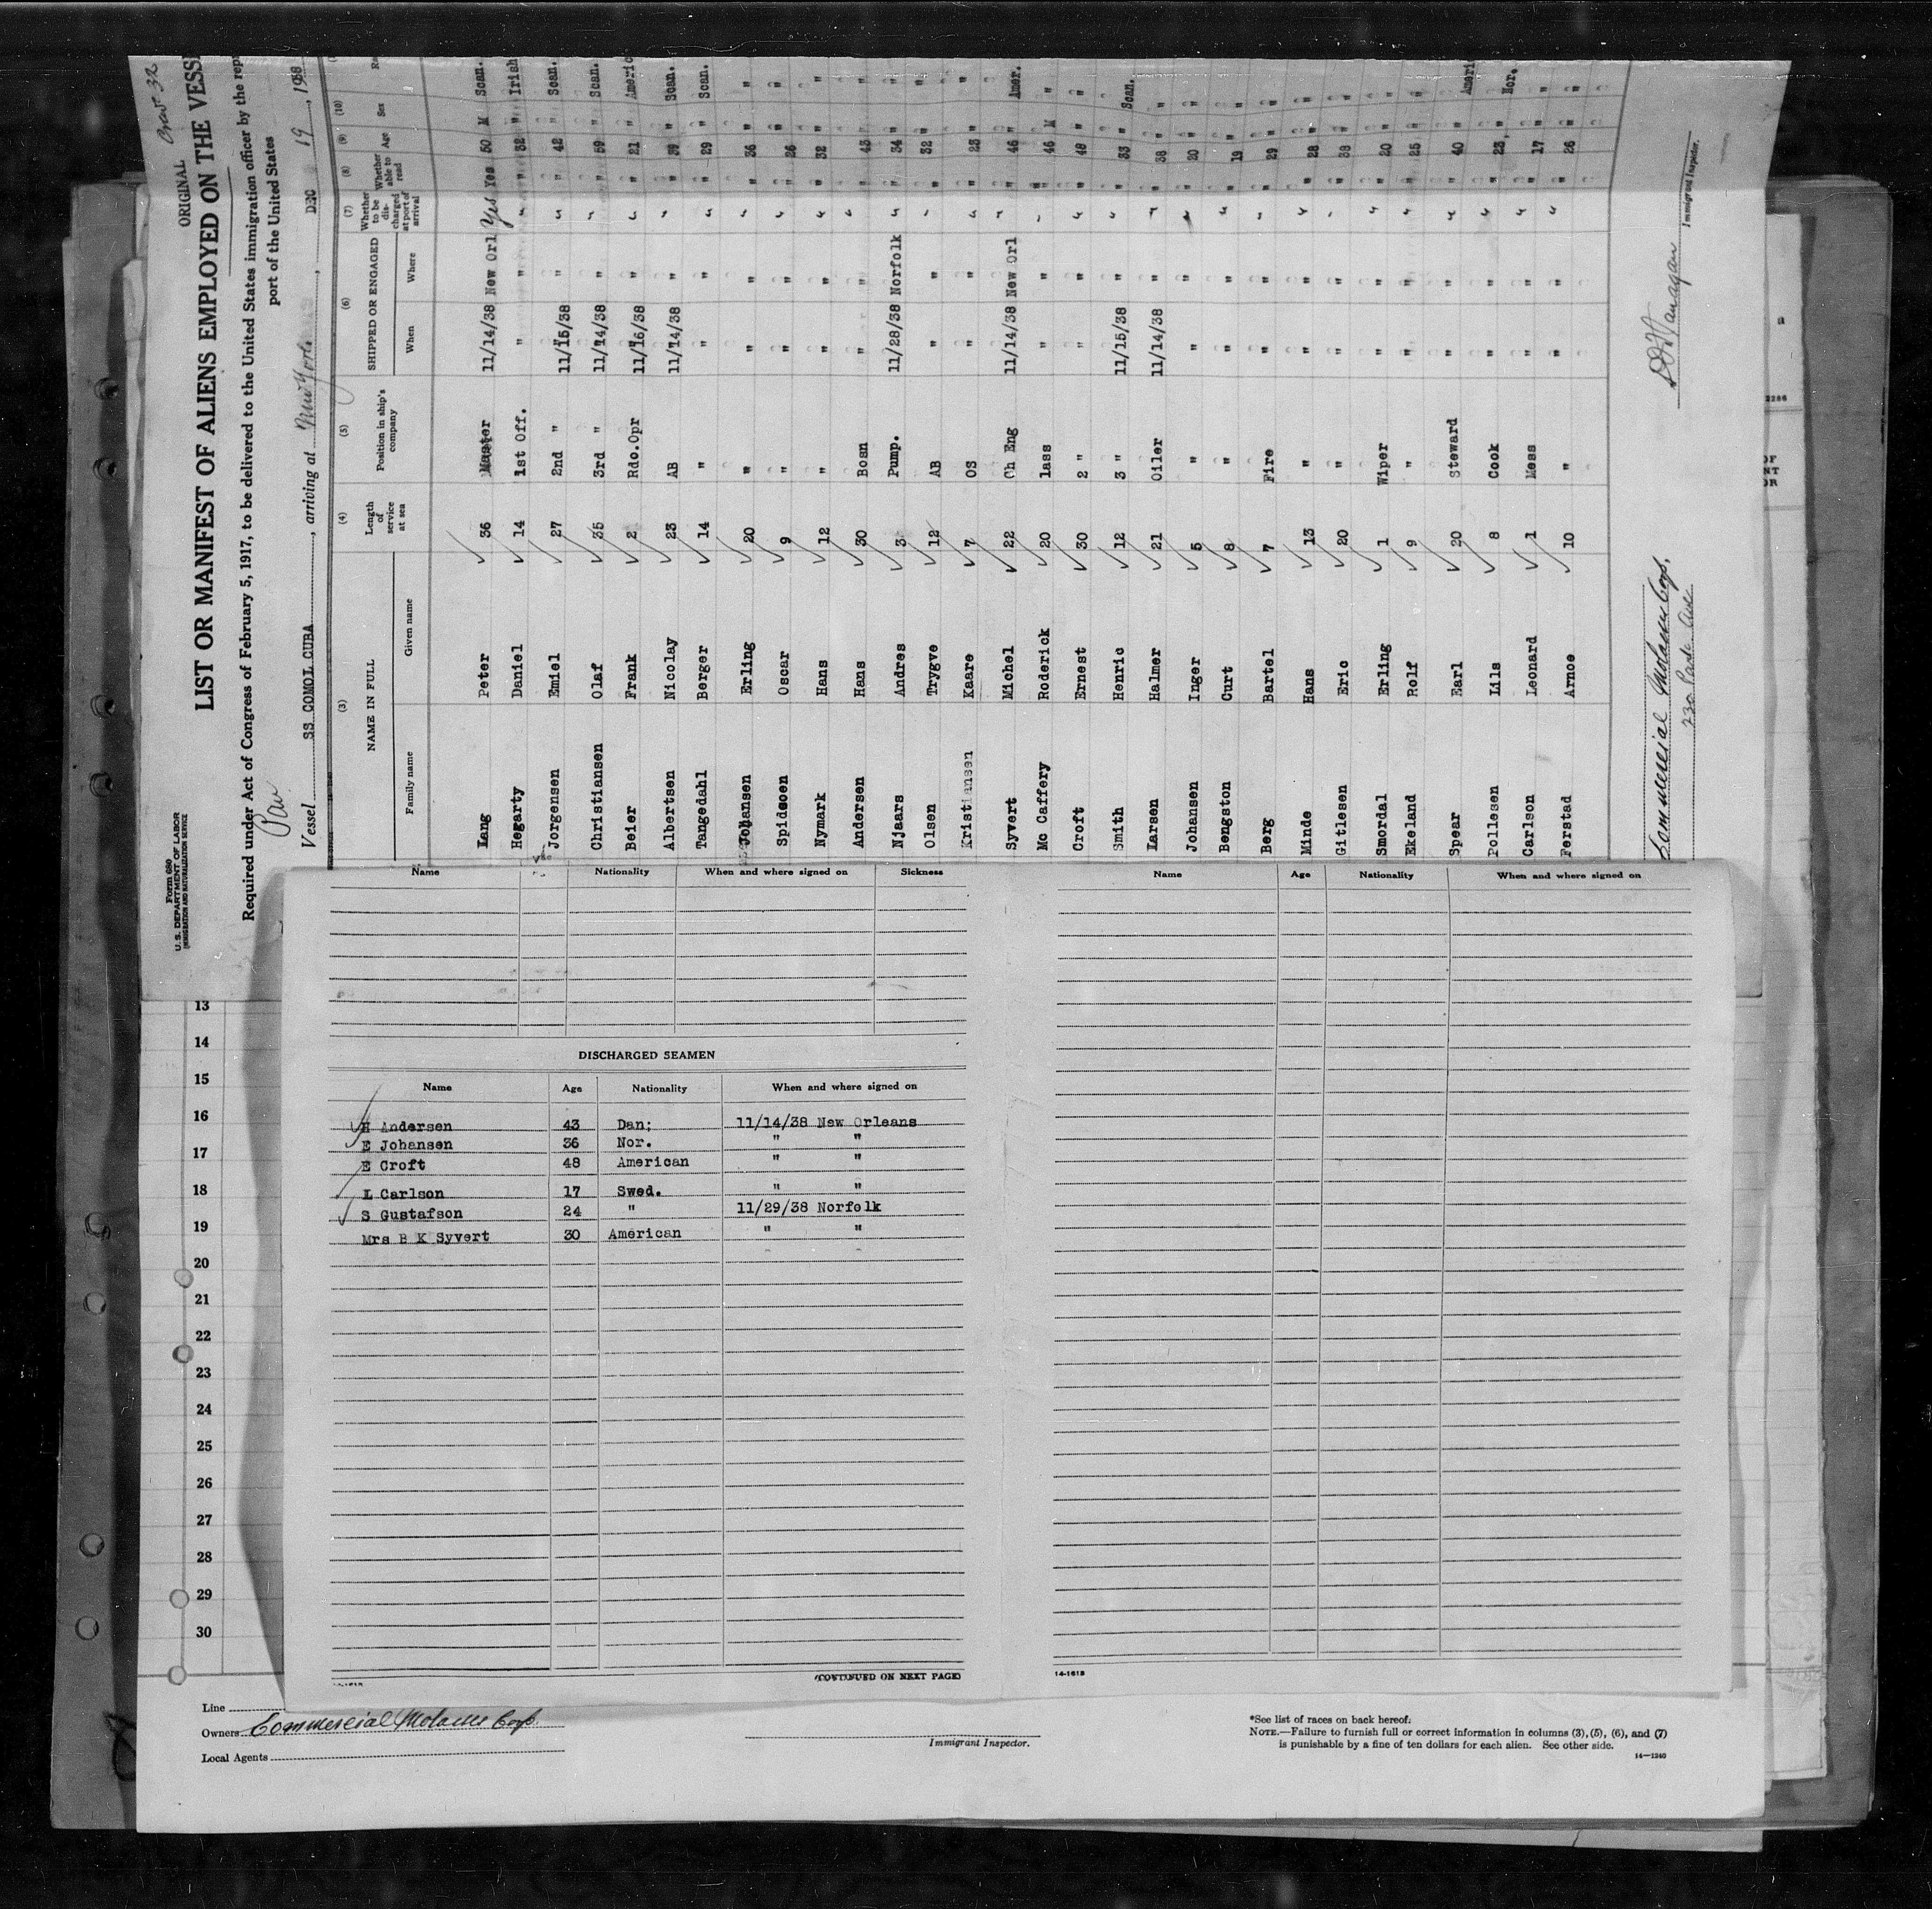 ORIGINAL
Crew 32
Form 680
U. S. DEPARTMENT OF LABOR
IMMIGRATION AND NATURALIZATION SERVICE
LIST OR MANIFEST OF ALIENS EMPLOYED ON THE VESS
Required under Act of Congress of February 5, 1917, to be delivered to the United States immigration officer by the repr
port of the United States
Pan
Vessel SS COMOL CUBA, arriving at New York, DEC 19, 1938
(3) (4) (5) (6) (7) (8) (9) (10)
NAME IN FULL Length of service at sea Position in ship's company SHIPPED OR ENGAGED Whether to be discharged at port of arrival Whether able to read Age Sex Ra
Family name Given name When Where
Lang Peter 36 Master 11/14/38 New Orl Yes Yes 50 M Scan.
Hegarty Daniel 14 1st Off. " " " " 32 " Irish
Jorgensen Emiel 27 2nd " 11/15/38 " " " 42 " Scan.
Christiansen Olaf 35 3rd " 11/14/38 " " " 59 " Scan.
Beier Frank 2 Rdo.Opr 11/16/38 " " " 21 " Americ
Albertsen Nicolay 23 AB 11/14/38 " " " 39 " Scan.
Tangedahl Berger 14 " " " " " 29 " Scan.
Johansen Erling 20 " " " " " 36 " "
Spidsoen Oscar 9 " " " " " 26 " "
Nymark Hans 12 " " " " " 32 " "
Andersen Hans 30 Bosn " " " " 43 " "
Njaars Andres 3 Pump. 11/28/38 Norfolk " " 34 " "
Olsen Trygve 12 AB " " " " 32 " "
Kristiansen Kaare 7 OS " " " " 23 " "
Syvert Michel 22 Ch Eng 11/14/38 New Orl " " 46 " Amer.
Mc Caffery Roderick 20 1ass " " " " 46 M "
Croft Ernest 30 2 " " " " " 48 " "
Smith Henric 12 3 " 11/15/38 " " " 33 " Scan.
Larsen Halmer 21 Oiler 11/14/38 " " " 38 " "
Johansen Inger 5 " " " " " 20 " "
Bengston Curt 8 " " " " " 19 " "
Berg Bartel 7 Fire " " " " 29 " "
Minde Hans 13 " " " " " 28 " "
Gitlesen Eric 20 " " " " " 38 " "
Smordal Erling 1 Wiper " " " " 20 " "
Ekeland Rolf 9 " " " " " 25 " "
Spear Earl 20 Steward " " " " 40 " Ameri
Pollesen Lils 8 Cook " " " " 23 " Nor.
Carlson Leonard 1 Mess " " " " 17 " "
Ferstad Arnoe 10 " " " " " 26 " "
Commercial Molasses Corp.
230 Park Ave
Immigrant Inspector.
Name Nationality When and where signed on Sickness
Name Age Nationality When and where signed on
DISCHARGED SEAMEN
Name Age Nationality When and where signed on
H Andersen 43 Dan; 11/14/38 New Orleans
E Johansen 36 Nor. " "
E Croft 48 American " "
L Carlson 17 Swed. " "
S Gustafson 24 " 11/29/38 Norfolk
Mrs B K Syvert 30 American " "
(CONTINUED ON NEXT PAGE)
14-1613
13
14
15
16
17
18
19
20
21
22
23
24
25
26
27
28
29
30
Line
Owners Commercial Molasses Corp.
Local Agents
Immigrant Inspector.
*See list of races on back hereof.
NOTE.—Failure to furnish full or correct information in columns (3), (5), (6), and (7)
is punishable by a fine of ten dollars for each alien. See other side.
14—1240
2286